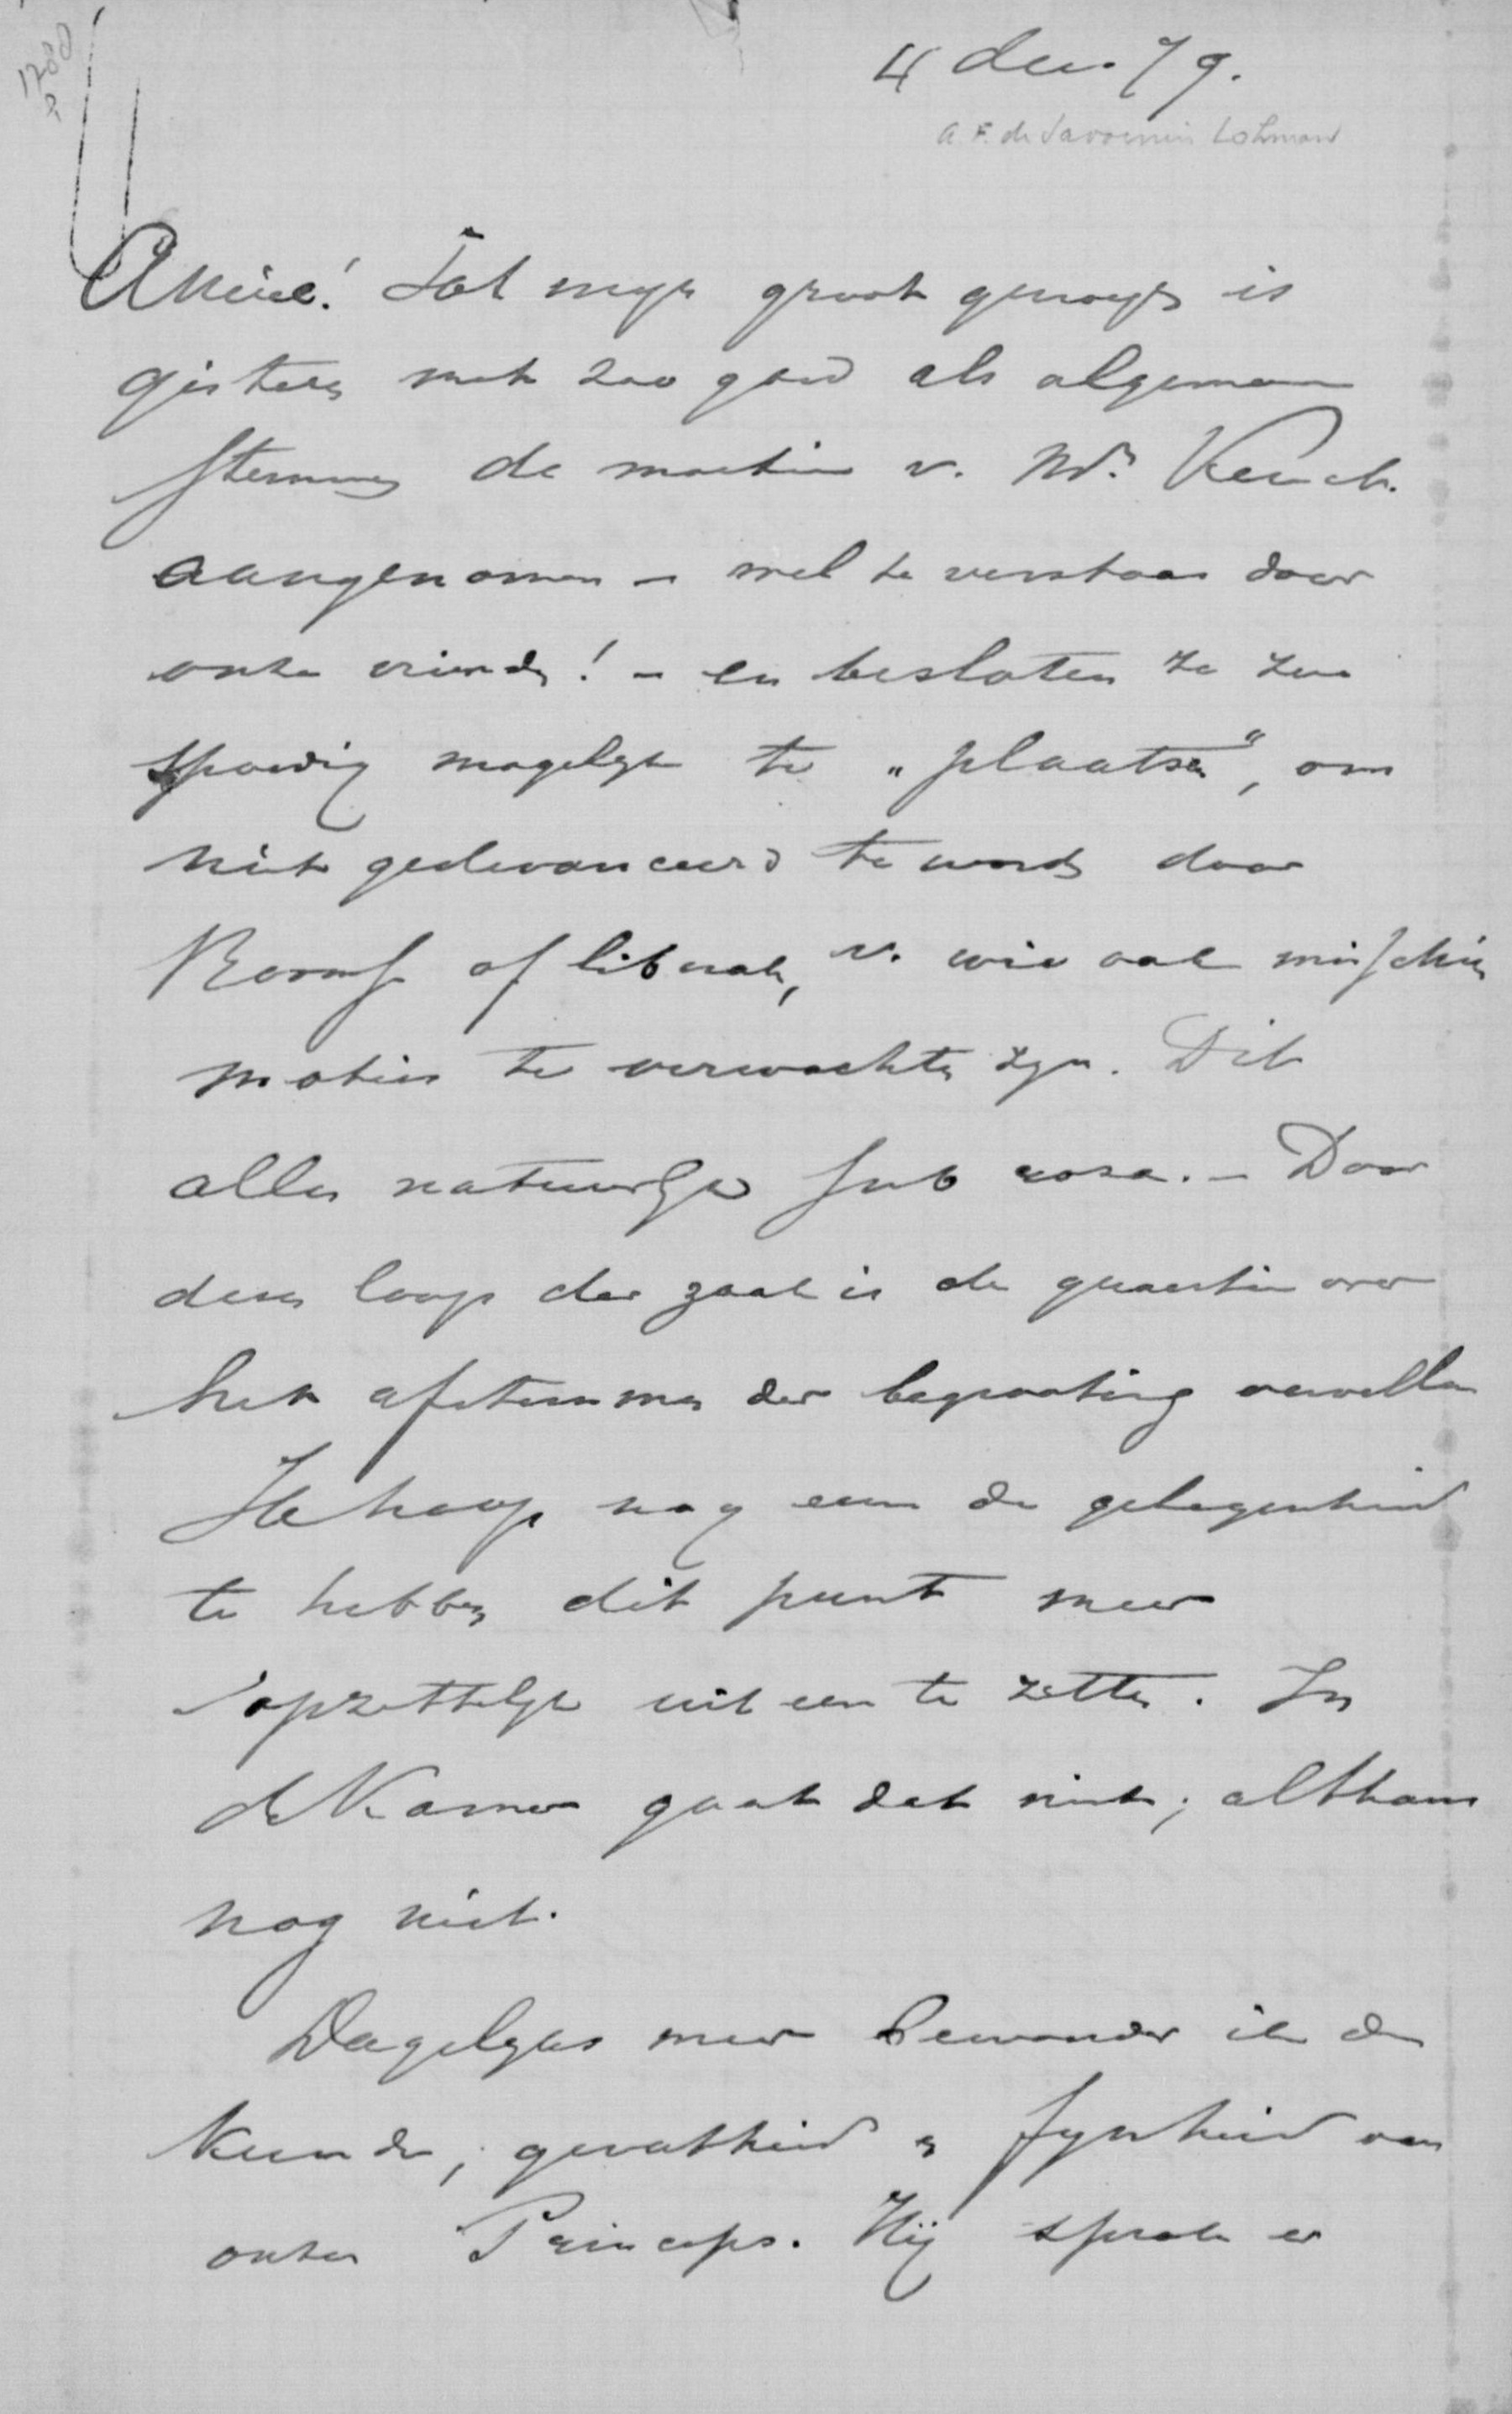 1280
4 dec. 79.
A. F. de Savornin Lohman
Amice! Tot mijn groot genoegen is
gisteren met zoo goed als algemeene
stemmen de motie v. Mr. Keuch.
aangenomen – wel te verstaan door
onze vrienden! – en besloten ze zoo
spoedig mogelijk te „plaatsen", om
niet gedevanceerd te worden door
Roomsch of liberaal, v. wie ook misschien
motien te verwachten zijn. Dit
alles natuurlijk sub rosa. – Door
dezen loop der zaak is de quaestie over
het afstemmen der begrooting vervallen
Ik hoop nog eens de gelegenheid
te hebben dit punt meer
opzettelijk uiteen te zetten. In
de Kamer gaat dat niet; althans
nog niet.
Dagelijks meer bewonder ik de
kunde, gevatheid en fijnheid van
onzen Princeps. Hij sprak er